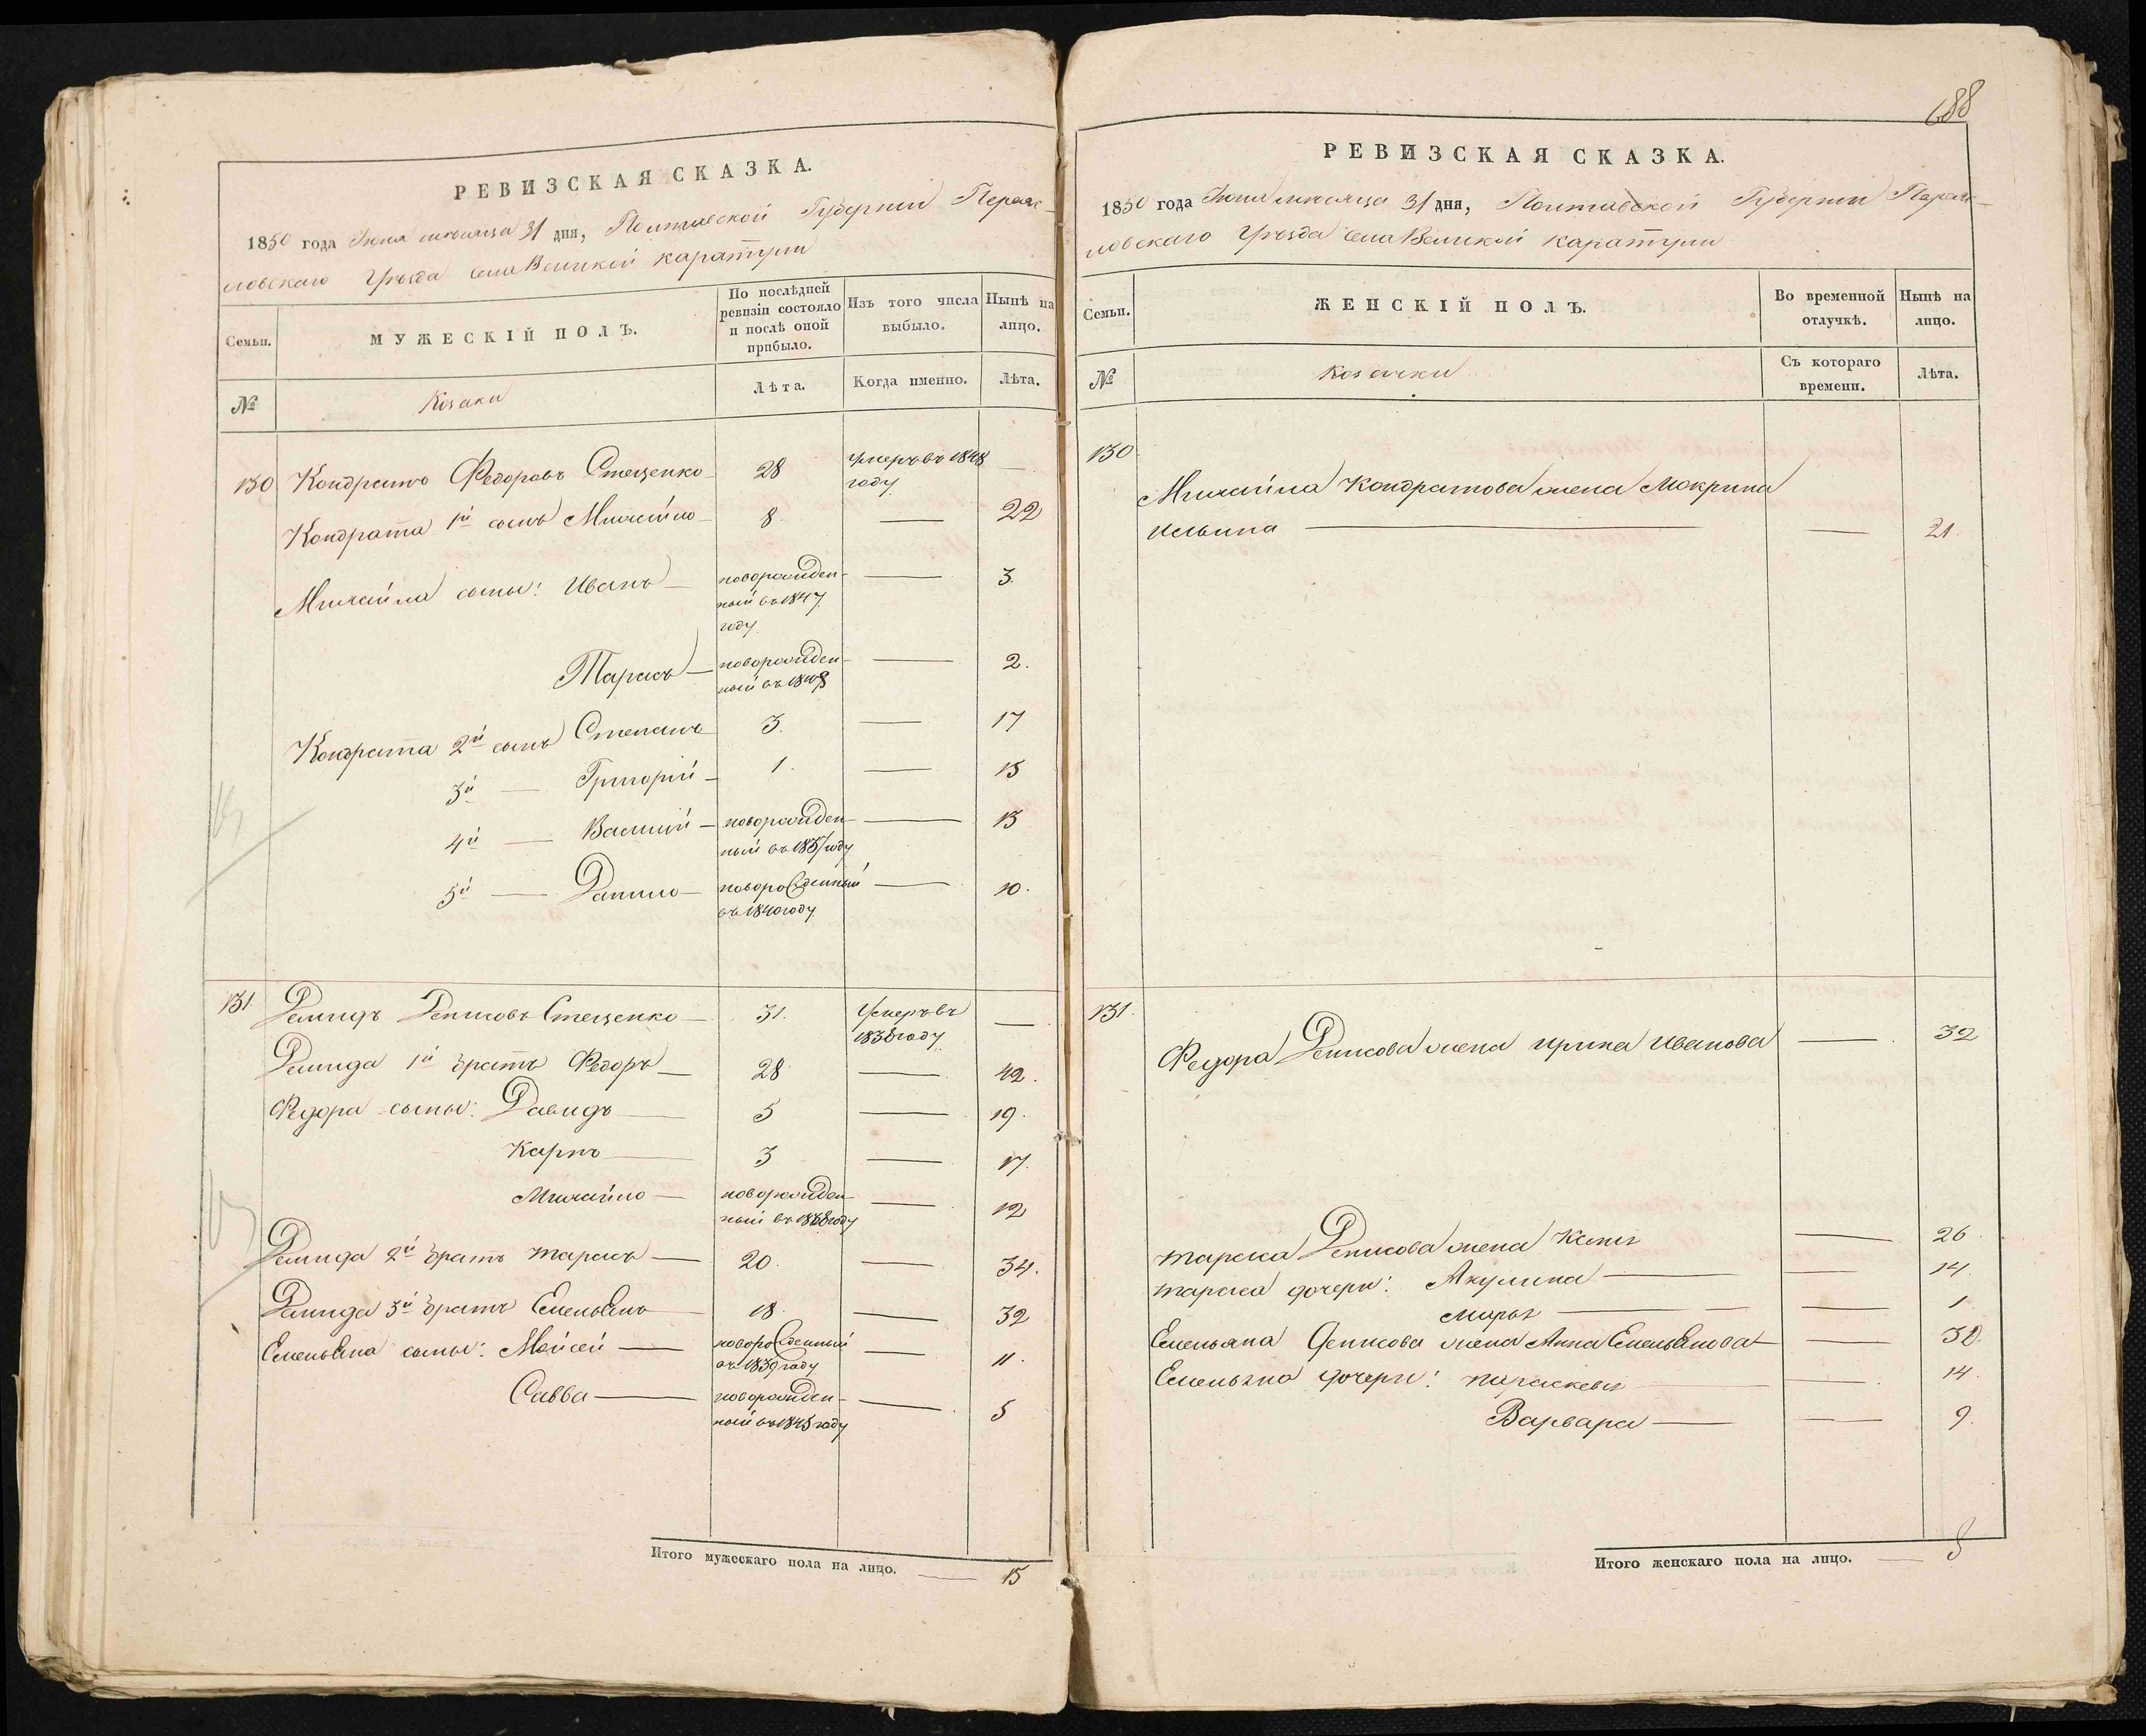 688
РЕВИЗСКАЯ СКАЗКА.
1850 года Июня месяца 31 дня, Полтавской Губернии Переяс-
ловскаго Уѣзда села Великой Каратули
Семьи.
МУЖЕСКІЙ ПОЛЪ.
По послѣдней ревизіи состояло и послѣ оной прибыло.
Изъ того числа выбыло.
Нынѣ на лицо.
№
Козаки
Лѣта.
Когда именно.
Лѣта.
130 Кондратъ Федоровъ Стеценко 28 Умеръ въ 1848 году —
Кондрата 1й сынъ Михайло 8 — 22
Михайла сыны: Иванъ — новорожден- ный въ 1847 году — 3.
Тарасъ — новорожден- ный въ 1848 — 2.
Кондрата 2й сынъ Степанъ 3. — 17
3й — Григорій — 1. — 15
4й — Василій — новорожден- ный въ 1837 году — 13
5й — Данило — новорожденный въ 1840 году — 10.
131 Демидъ Денисовъ Стеценко — 31. Умеръ въ 1838 году —
Демида 1й братъ Федоръ — 28 — 42.
Федора сыны: Давидъ — 5 — 19.
Карпъ — 3 — 17.
Михайло — новорожден- ный въ 1838 году — 12
Демида 2й братъ Тарасъ — 20. — 34.
Демида 3й братъ Емельянъ 18. — 32
Емельяна сыны: Мойсей — новорожденный въ 1839 году — 11.
Савва — новорожден- ный въ 1845 году — 5
Итого мужескаго пола на лицо. — 15
РЕВИЗСКАЯ СКАЗКА.
1850 года Июня месяца 31 дня, Полтавской Губернии Переяс-
ловскаго Уѣзда села Великой Каратули
Семьи.
ЖЕНСКІЙ ПОЛЪ.
Во временной отлучкѣ.
Нынѣ на лицо.
№
Козачки
Съ котораго времени.
Лѣта.
130
Михайла Кондратова жена Мокрина
Ильина — — 21.
131.
Федора Денисова жена Ирина Иванова — 32
Тараса Денисова жена — 26.
Тараса дочери: Акулина — — 14.
Марья — — 1.
Емельяна Денисова жена Анна Емельянова — 32.
Емельяна дочери: Параскевья — — 14.
Варвара — — 9.
Итого женскаго пола на лицо. — 8